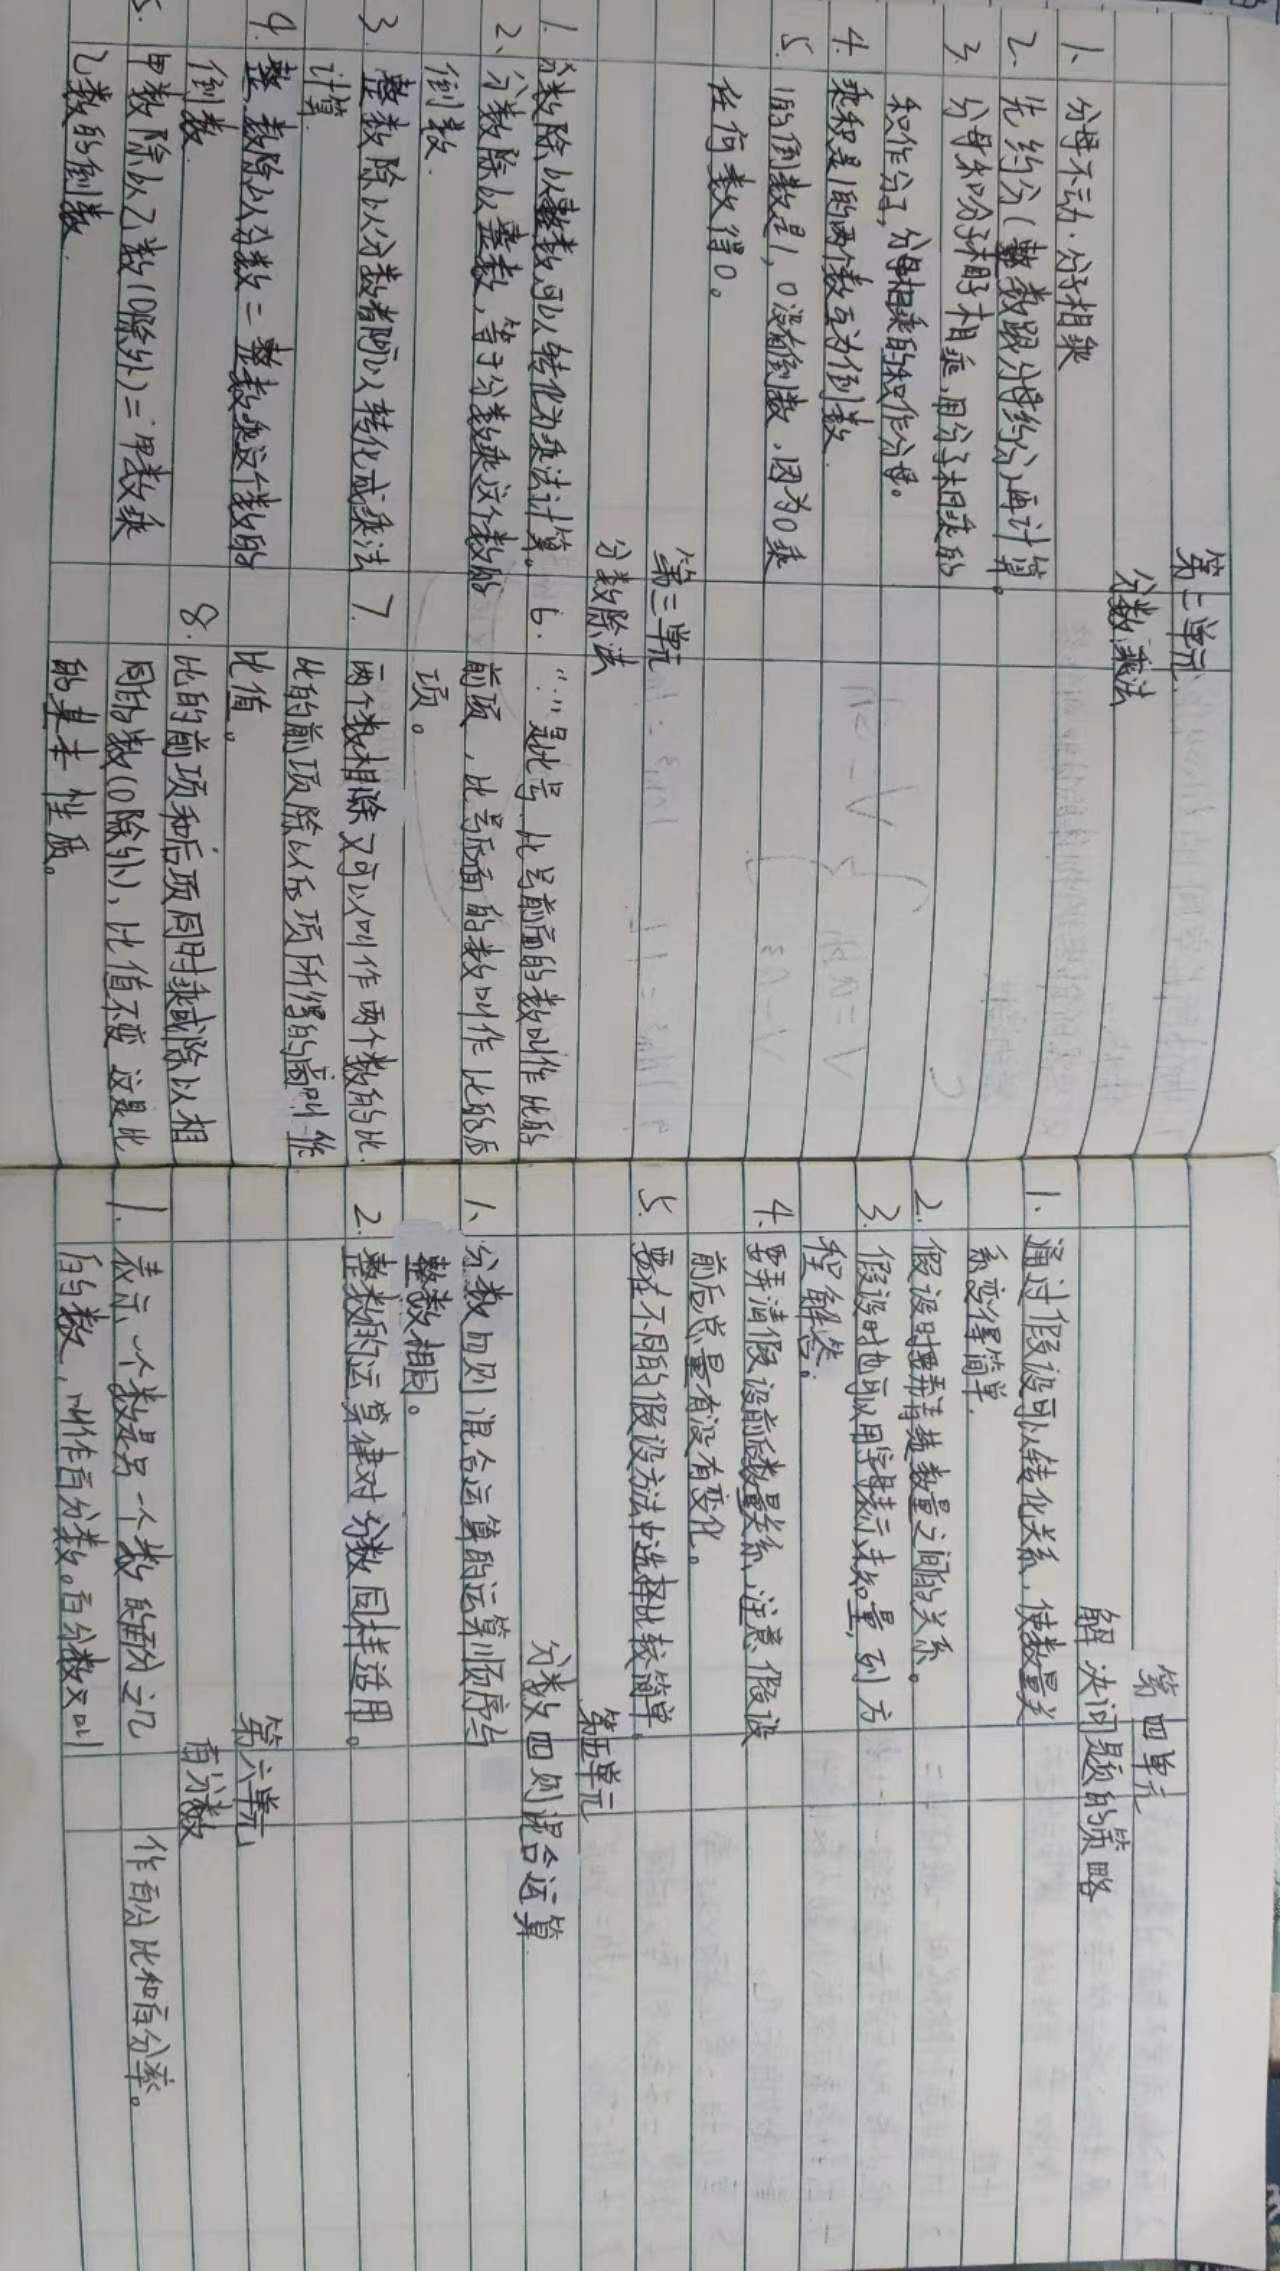 第二单元
分数乘法
1、分母不动.分子相乘
2、先约分(整数跟分母约分)再计算。
3、分母和分子相乘,用分子相乘的
积作分子,分母相乘的积作分母。
4、乘积是1的两个数互为倒数
5、1的倒数是1,0没有倒数,因为0乘
任何数得0。
第三单元
分数除法
1、分数除以整数,可以转化为乘法计算。
2、分数除以整数,等于分数乘这个数的
倒数.
3、整数除以分数都可以转化成乘法
计算.
4.整数除以分数=整数乘这个数的
倒数.
5.甲数除以乙数(0除外)=甲数乘
乙数的倒数.
6."："是比号.比号前面的数叫作比的
前项,比号后面的数叫作比的后
项。
7.两个数相除又可以叫作两个数的比.
比的前项除以后项所得的商叫作
比值。
8.比的前项和后项同时乘或除以相
同的数(0除外),比值不变 这是比
的基本性质。
第四单元
解决问题的策略
1、通过假设可以转化关系,使数量关
系变得简单.
2.假设时要弄清楚数量之间的关系。
3.假设时也可以用字母表示未知量,列方
程解答。
4.要弄清假设前后数量关系,注意假设
前后总量有没有变化。
5.要在不同的假设方法中选择比较简单.
第五单元
分数四则混合运算
1、分数四则混合运算的运算顺序与
整数相同。
2.整数的运算律对分数同样适用。
第六单元
百分数
1.表示一个数是另一个数的百分之几
的数,叫作百分数。百分数又叫
作百分比和百分率。